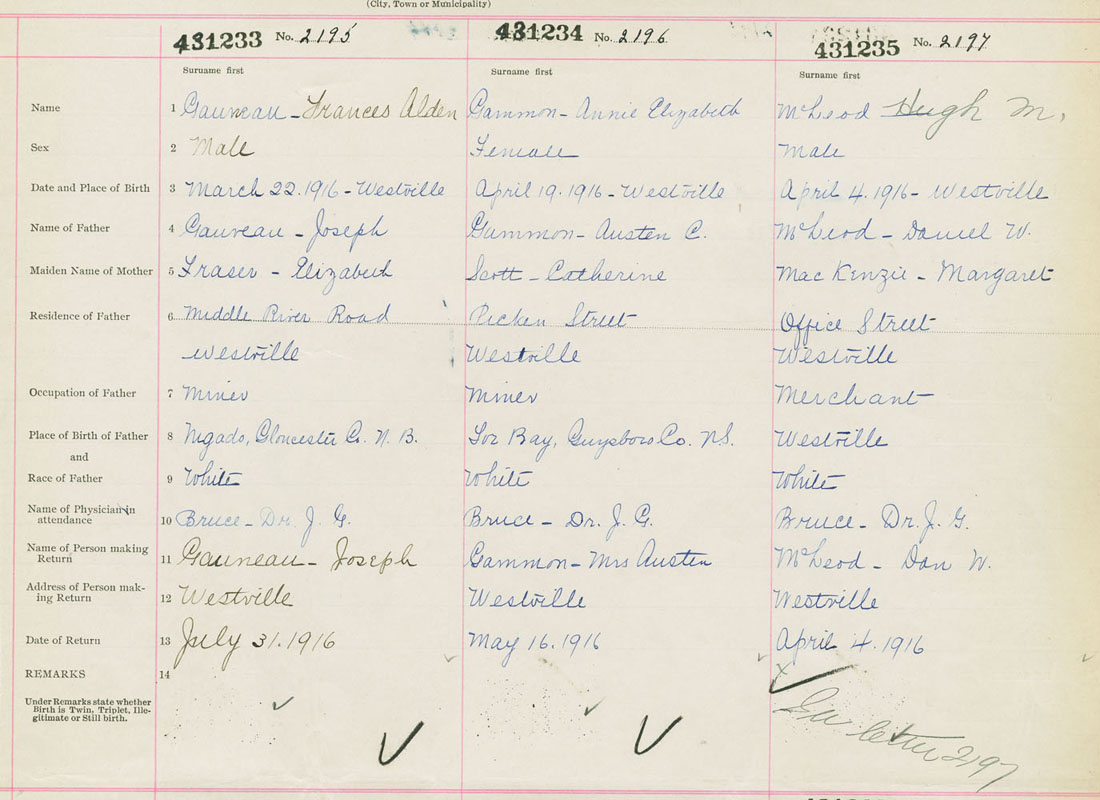 (City, Town or Municipality)
431233 No. 2195 431234 No. 2196 431235 No. 2197
Surname first Surname first Surname first
Name 1 Gauneau - Frances Alden Gammon - Annie Elizabeth McLeod Hugh M.
Sex 2 Male Female Male
Date and Place of Birth 3 March 22.1916 - Westville April 19.1916 - Westville April 4.1916 - Westville
Name of Father 4 Gauveau - Joseph Gammon - Austen C. McLeod - Daniel W.
Maiden Name of Mother 5 Fraser - Elizabeth Scott - Catherine MacKenzie - Margaret
Residence of Father 6 Middle River Road Picken Street Office Street
Westville Westville Westville
Occupation of Father 7 Miner Miner Merchant
Place of Birth of Father 8 Nigado, Gloucester Co. N.B. Tor Bay, Guysboro Co. N.S. Westville
and
Race of Father 9 White White White
Name of Physician in
attendance 10 Bruce - Dr. J. G. Bruce - Dr. J. G. Bruce - Dr. J. G.
Name of Person making
Return 11 Gauneau - Joseph Gammon - Mrs Austen McLeod - Dan W.
Address of Person mak-
ing Return 12 Westville Westville Westville
Date of Return 13 July 31.1916 May 16.1916 April 4.1916
REMARKS 14
Under Remarks state whether
Birth is Twin, Triplet, Ille-
gitimate or Still birth.
letter 2197